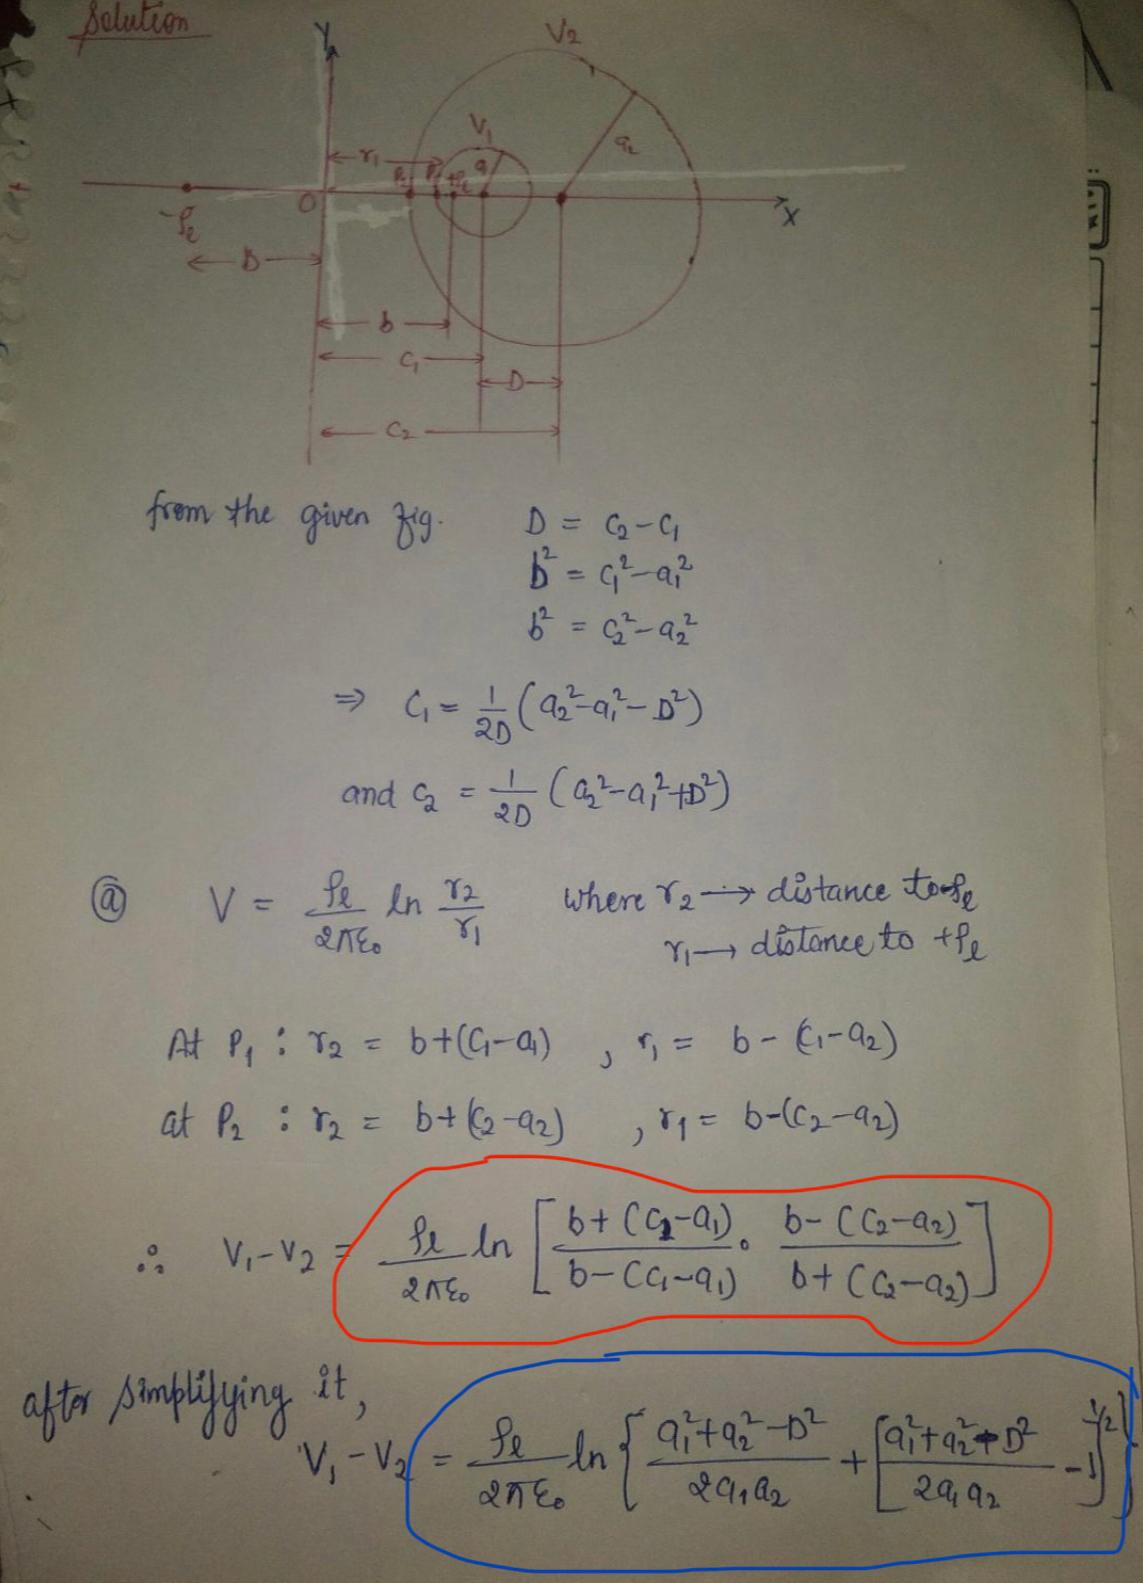 Solution
Y
V2
V1
a2
r1
P2 P1 +ρl
a
-ρl
O
X
D
b
C1
D
C2
from the given fig. D = C2-C1
b² = C1²-a1²
b² = C2²-a2²
⇒ C1 = 1/2D (a2²-a1²-D²)
and C2 = 1/2D (a2²-a1²+D²)
ⓐ V = ρl/2πε0 ln r2/r1 where r2 → distance to -ρl
r1 → distance to +ρl
At P1 : r2 = b+(C1-a1) , r1 = b-(C1-a2)
at P2 : r2 = b+(C2-a2) , r1 = b-(C2-a2)
∴ V1-V2 = ρl/2πε0 ln [ b+(C1-a1)/b-(C1-a1) . b-(C2-a2)/b+(C2-a2) ]
after simplifying it,
V1-V2 = ρl/2πε0 ln { a1²+a2²-D²/2a1a2 + [ a1²+a2²+D²/2a1a2 -1 ]^1/2 }